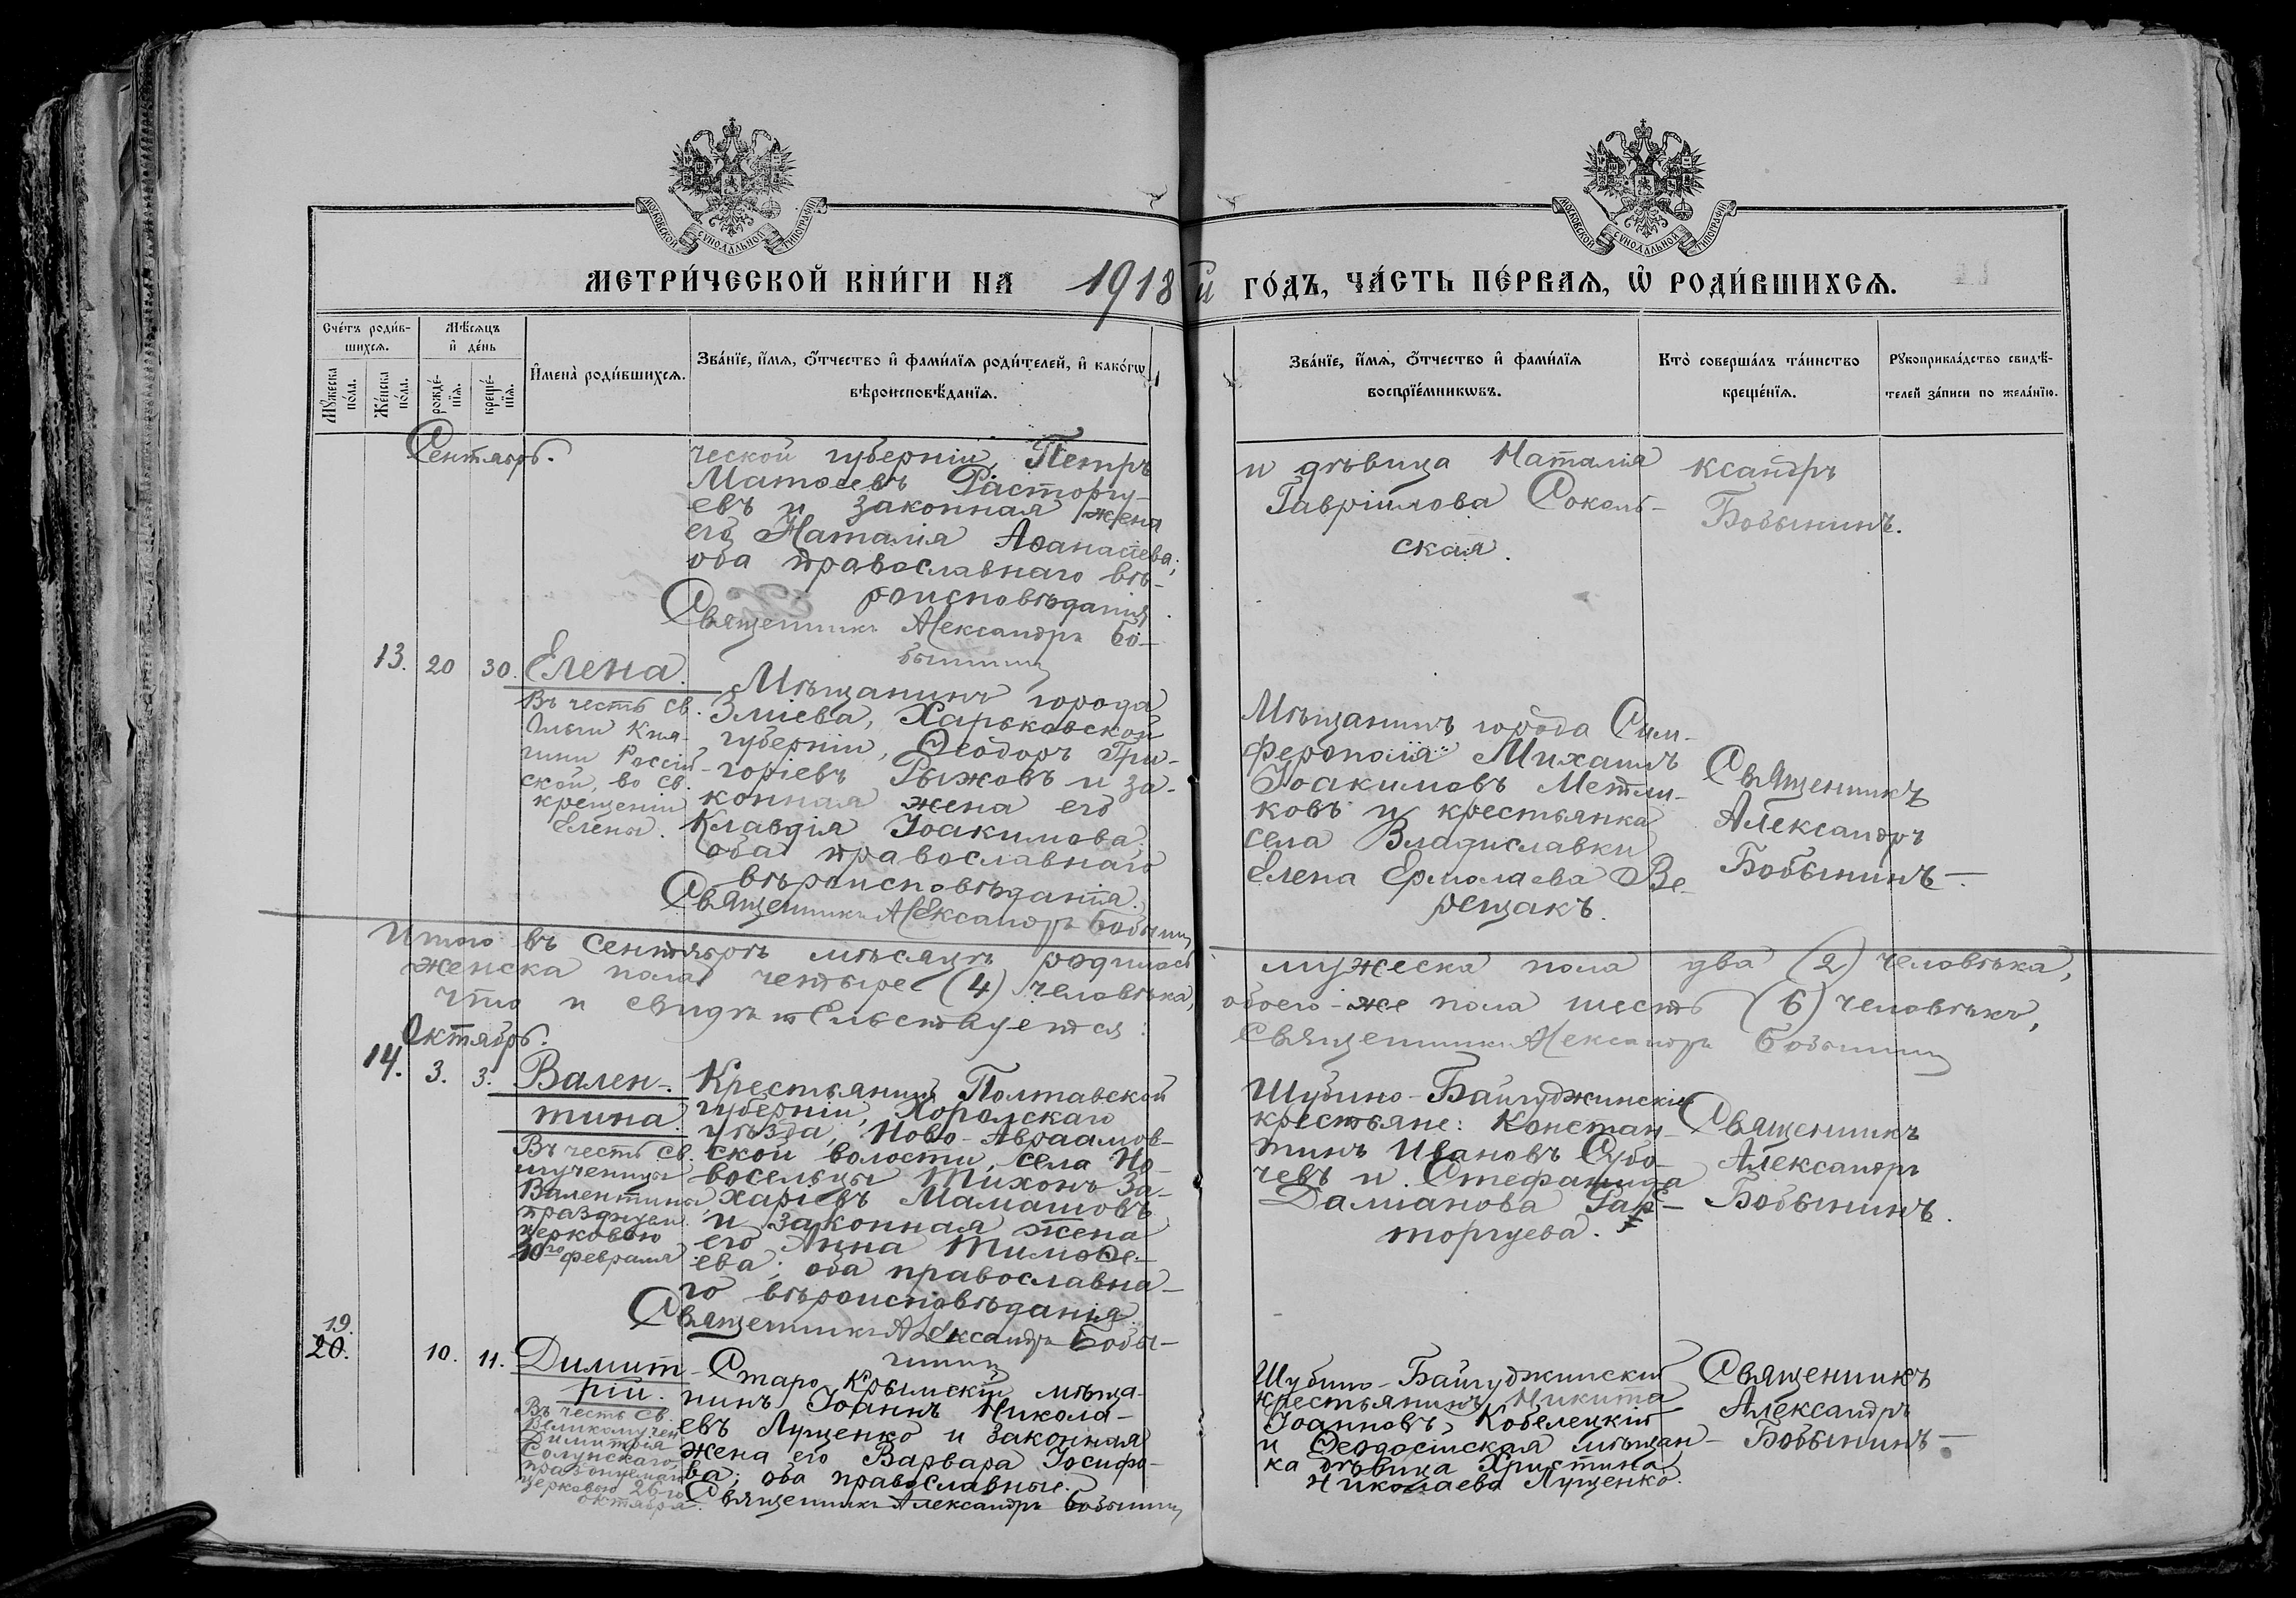 МОСКОВСКОЙ СѴНОДАЛЬНОЙ ТИПОГРАФІИ
МОСКОВСКОЙ СѴНОДАЛЬНОЙ ТИПОГРАФІИ
МЕТРИ́ЧЕСКОЙ КНИ́ГИ НА 1918 й ГО́ДЪ, ЧА́СТЬ ПЕ́РВАѦ, Ѿ РОДИ́ВШИХСѦ.
Сче́тъ роди́в-
шихсѧ.
Мѣ́сѧцъ
и де́нь
Мꙋ́жеска по́ла.
Же́нска по́ла.
рожде́-
нїѧ.
креще́-
нїѧ.
И҆мена̀ роди́вшихсѧ.
Зва́нїе, и҆́мѧ, ѻ҆́тчество и҆ фами́лїѧ роди́телей, и҆ како́гѡ
вѣроисповѣ́данїѧ.
Зва́нїе, и҆́мѧ, ѻ҆́тчество и҆ фами́лїѧ
воспрїе́мникѡвъ.
Кто̀ соверша́лъ та́инство
креще́нїѧ.
Рꙋкоприкла́дство свидѣ́-
телей за́писи по жела́нїю.
Сентябрь.
ческой губерніи, Петръ
Матѳеевъ Расторгу-
евъ и законная жена
его Наталія Аѳанасіева;
оба православнаго вѣ-
роисповѣданія.
Священникъ Александръ Бо-
бынинъ
и дѣвица Наталія
Гавріилова Соколь-
ская.
ксандръ
Бобынинъ.
13. 20 30. Елена.
Въ честь св.
Ольги Кня-
гини Россій-
ской, во св.
крещеніи
Елены.
Мѣщанинъ города
Зміева, Харьковской
губерніи, Ѳеодоръ Гри-
горіевъ Рыжовъ и за-
конная жена его
Клавдія Іоакимова
оба православнаго
вѣроисповѣданія.
Священникъ Александръ Бобынинъ
Мѣщанинъ города Сим-
ферополя Михаилъ
Іоакимовъ Метли-
ковъ и крестьянка
села Владиславки
Елена Ермолаева Ве-
рещакъ.
Священникъ
Александръ
Бобынинъ.
Итого въ сентябрѣ мѣсяцѣ родилось мужеска пола два (2) человѣка,
женска пола четыре (4) человѣка, обоего-же пола шесть (6) человѣкъ,
что и свидѣтельствуется: Священникъ Александръ Бобынинъ
Октябрь.
14. 3. 3. Вален-
тина.
Въ честь св.
мученицы
Валентины,
празднуем.
церковію
10го февраля
Крестьянинъ Полтавской
губерніи, Хорольскаго
уѣзда, Ново-Авраамов-
ской волости, села Но-
восельцы Тихонъ За-
харіевъ Мамашовъ
и законная жена
его Анна Тимоѳе-
ева; оба православна-
го вѣроисповѣданія
Священникъ Александръ Бобы-
нинъ
Шубино-Байгуджинскіе
крестьяне: Констан-
тинъ Ивановъ Субо-
чевъ и Стефанида
Даміанова Рас-
торгуева.
Священникъ
Александръ
Бобынинъ.
19.
20. 10. 11. Димит-
рій.
Въ честь св.
Великомучен.
Димитрія
Солунскаго,
празднуемаго
церковью 26-го
октября.
Старо-Крымскій мѣща-
нинъ Іоаннъ Никола-
евъ Лущенко и законная
жена его Варвара Іосифо-
ва; оба православные.
Священникъ Александръ Бобынинъ
Шубино-Байгуджинскій
крестьянинъ Никита
Іоанновъ Кобелецкій
и Ѳеодосійская мѣщан-
ка дѣвица Христина
Николаева Лущенко.
Священникъ
Александръ
Бобынинъ